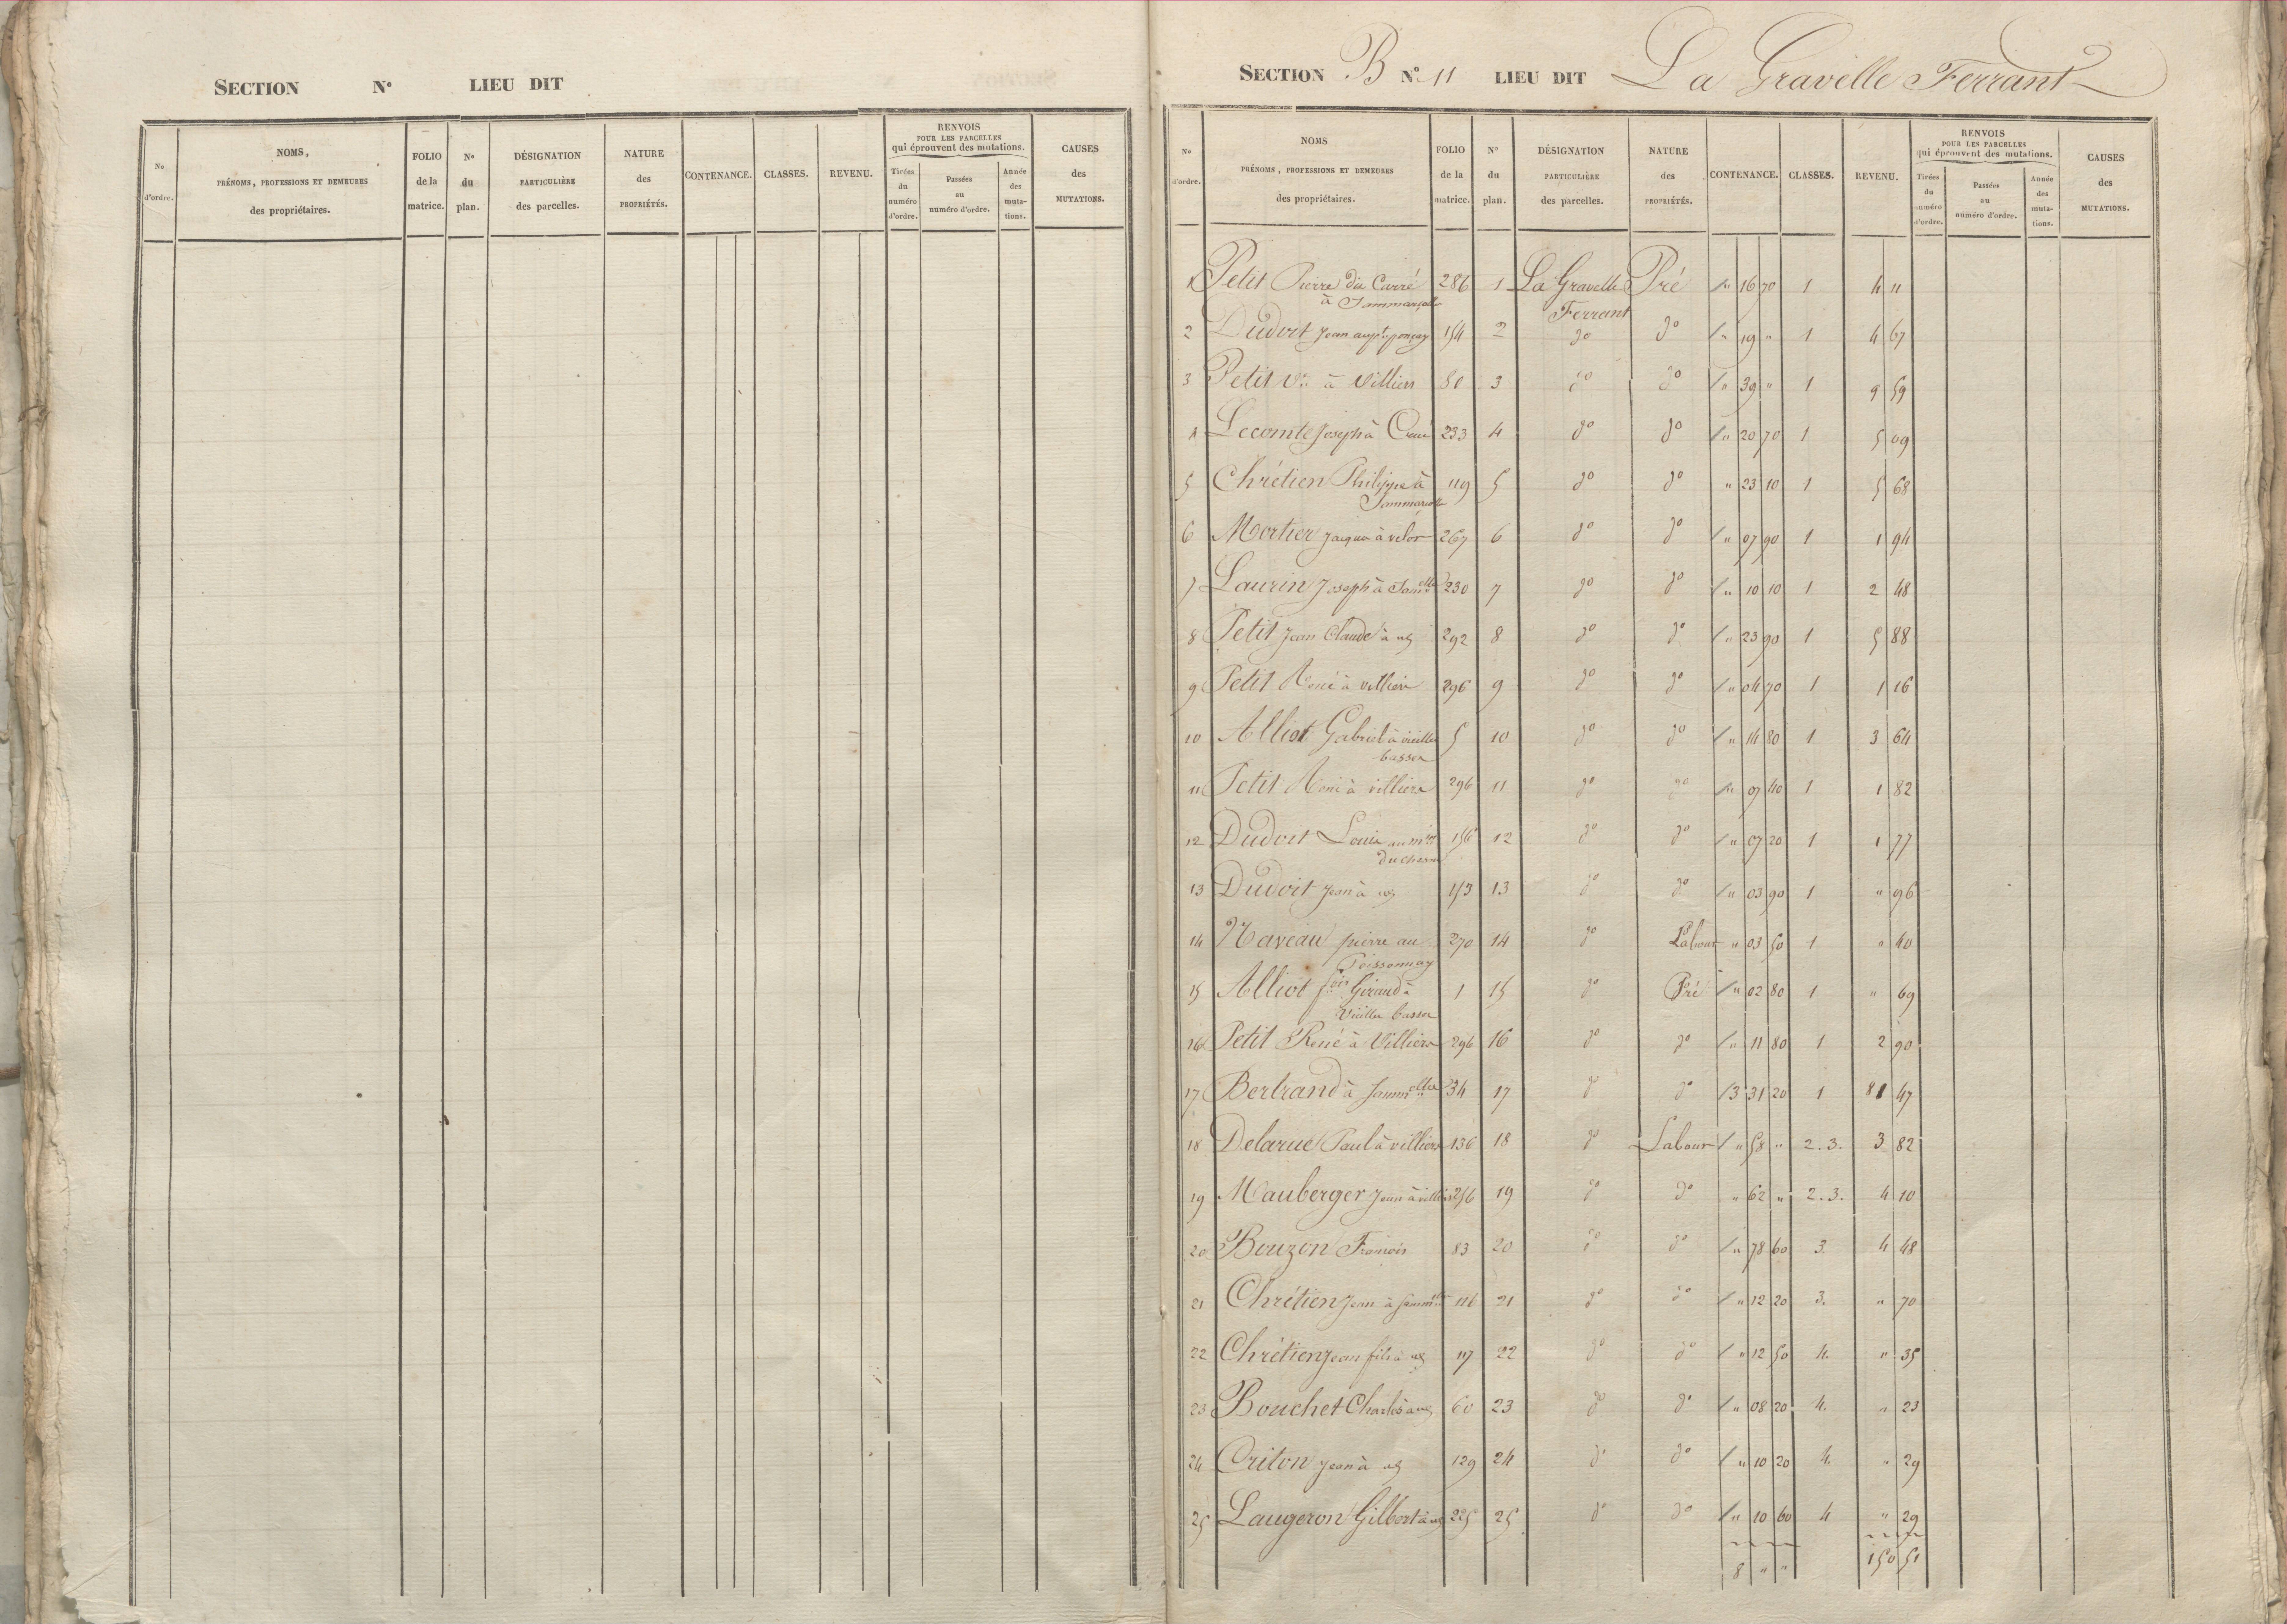 SECTION N° LIEU DIT
No d'ordre. NOMS, PRÉNOMS, PROFESSIONS ET DEMEURES des propriétaires. FOLIO de la matrice. N° du plan. DÉSIGNATION PARTICULIÈRE des parcelles. NATURE des PROPRIÉTÉS. CONTENANCE. CLASSES. REVENU. RENVOIS POUR LES PARCELLES qui éprouvent des mutations. Tirées du numéro d'ordre. Passées au numéro d'ordre. Année des mutations. CAUSES des MUTATIONS.
SECTION B N° 11 LIEU DIT La Gravelle Ferrant
No d'ordre. NOMS PRÉNOMS, PROFESSIONS ET DEMEURES des propriétaires. FOLIO de la matrice. N° du plan. DÉSIGNATION PARTICULIÈRE des parcelles. NATURE des PROPRIÉTÉS. CONTENANCE. CLASSES. REVENU. RENVOIS POUR LES PARCELLES qui éprouvent des mutations. Tirées du numéro d'ordre. Passées au numéro d'ordre. Année des mutations. CAUSES des MUTATIONS.
1 Petit Pierre du Carré 286 1 La Gravelle Pré " 16 70 1 4 11
à Ferrant
2 Dudoit Jean 154 2 d° d° " 19 " 1 4 67
3 Petit Ve à Villiers 80 3 d° d° " 39 " 1 9 59
4 Lecomte Joseph à 233 4 d° d° " 20 70 1 5 09
5 Chrétien Philippe à 119 5 d° d° " 23 10 1 5 68
6 Mortier Jacques à velor 267 6 d° d° " 07 90 1 1 94
7 Laurin Joseph à 230 7 d° d° " 10 10 1 2 48
8 Petit Jean Claude à 292 8 d° d° " 23 90 1 5 88
9 Petit René à villiers 296 9 d° d° " 04 70 1 1 16
10 Alliot Gabriel à vieilles 5 10 d° d° " 14 80 1 3 64
basses
11 Petit René à villiers 296 11 d° d° " 07 40 1 1 82
12 Dudoit Louis au min 156 12 d° d° " 07 20 1 1 77
du
13 Dudoit Jean à 153 13 d° d° " 03 90 1 " 96
14 Naveau pierre au 270 14 d° Labour " 03 50 1 " 40
Poissonnay
15 Alliot fois Giraud à 1 15 d° Pré " 02 80 1 " 69
Vieilles basses
16 Petit René à Villiers 296 16 d° d° " 11 80 1 2 90
17 Bertrand à 34 17 d° d° 3 31 20 1 81 47
18 Delarue Paul à villiers 136 18 d° Labour " 58 " 2.3. 3 82
19 Mauberger Jean à villiers 256 19 d° d° " 62 " 2.3. 4 10
20 Bouzon François 83 20 d° d° " 78 60 3. 4 48
21 Chrétien Jean à 116 21 d° d° " 12 20 3. " 70
22 Chrétien Jean fils à 117 22 d° d° " 12 50 4. " 35
23 Bouchet Charles 60 23 d° d° " 08 20 4. " 23
24 Criton Jean à 129 24 d° d° " 10 20 4. " 29
25 Laugeron Gilbert à 225 25 d° d° " 10 60 4 " 29
8 " " 150 51